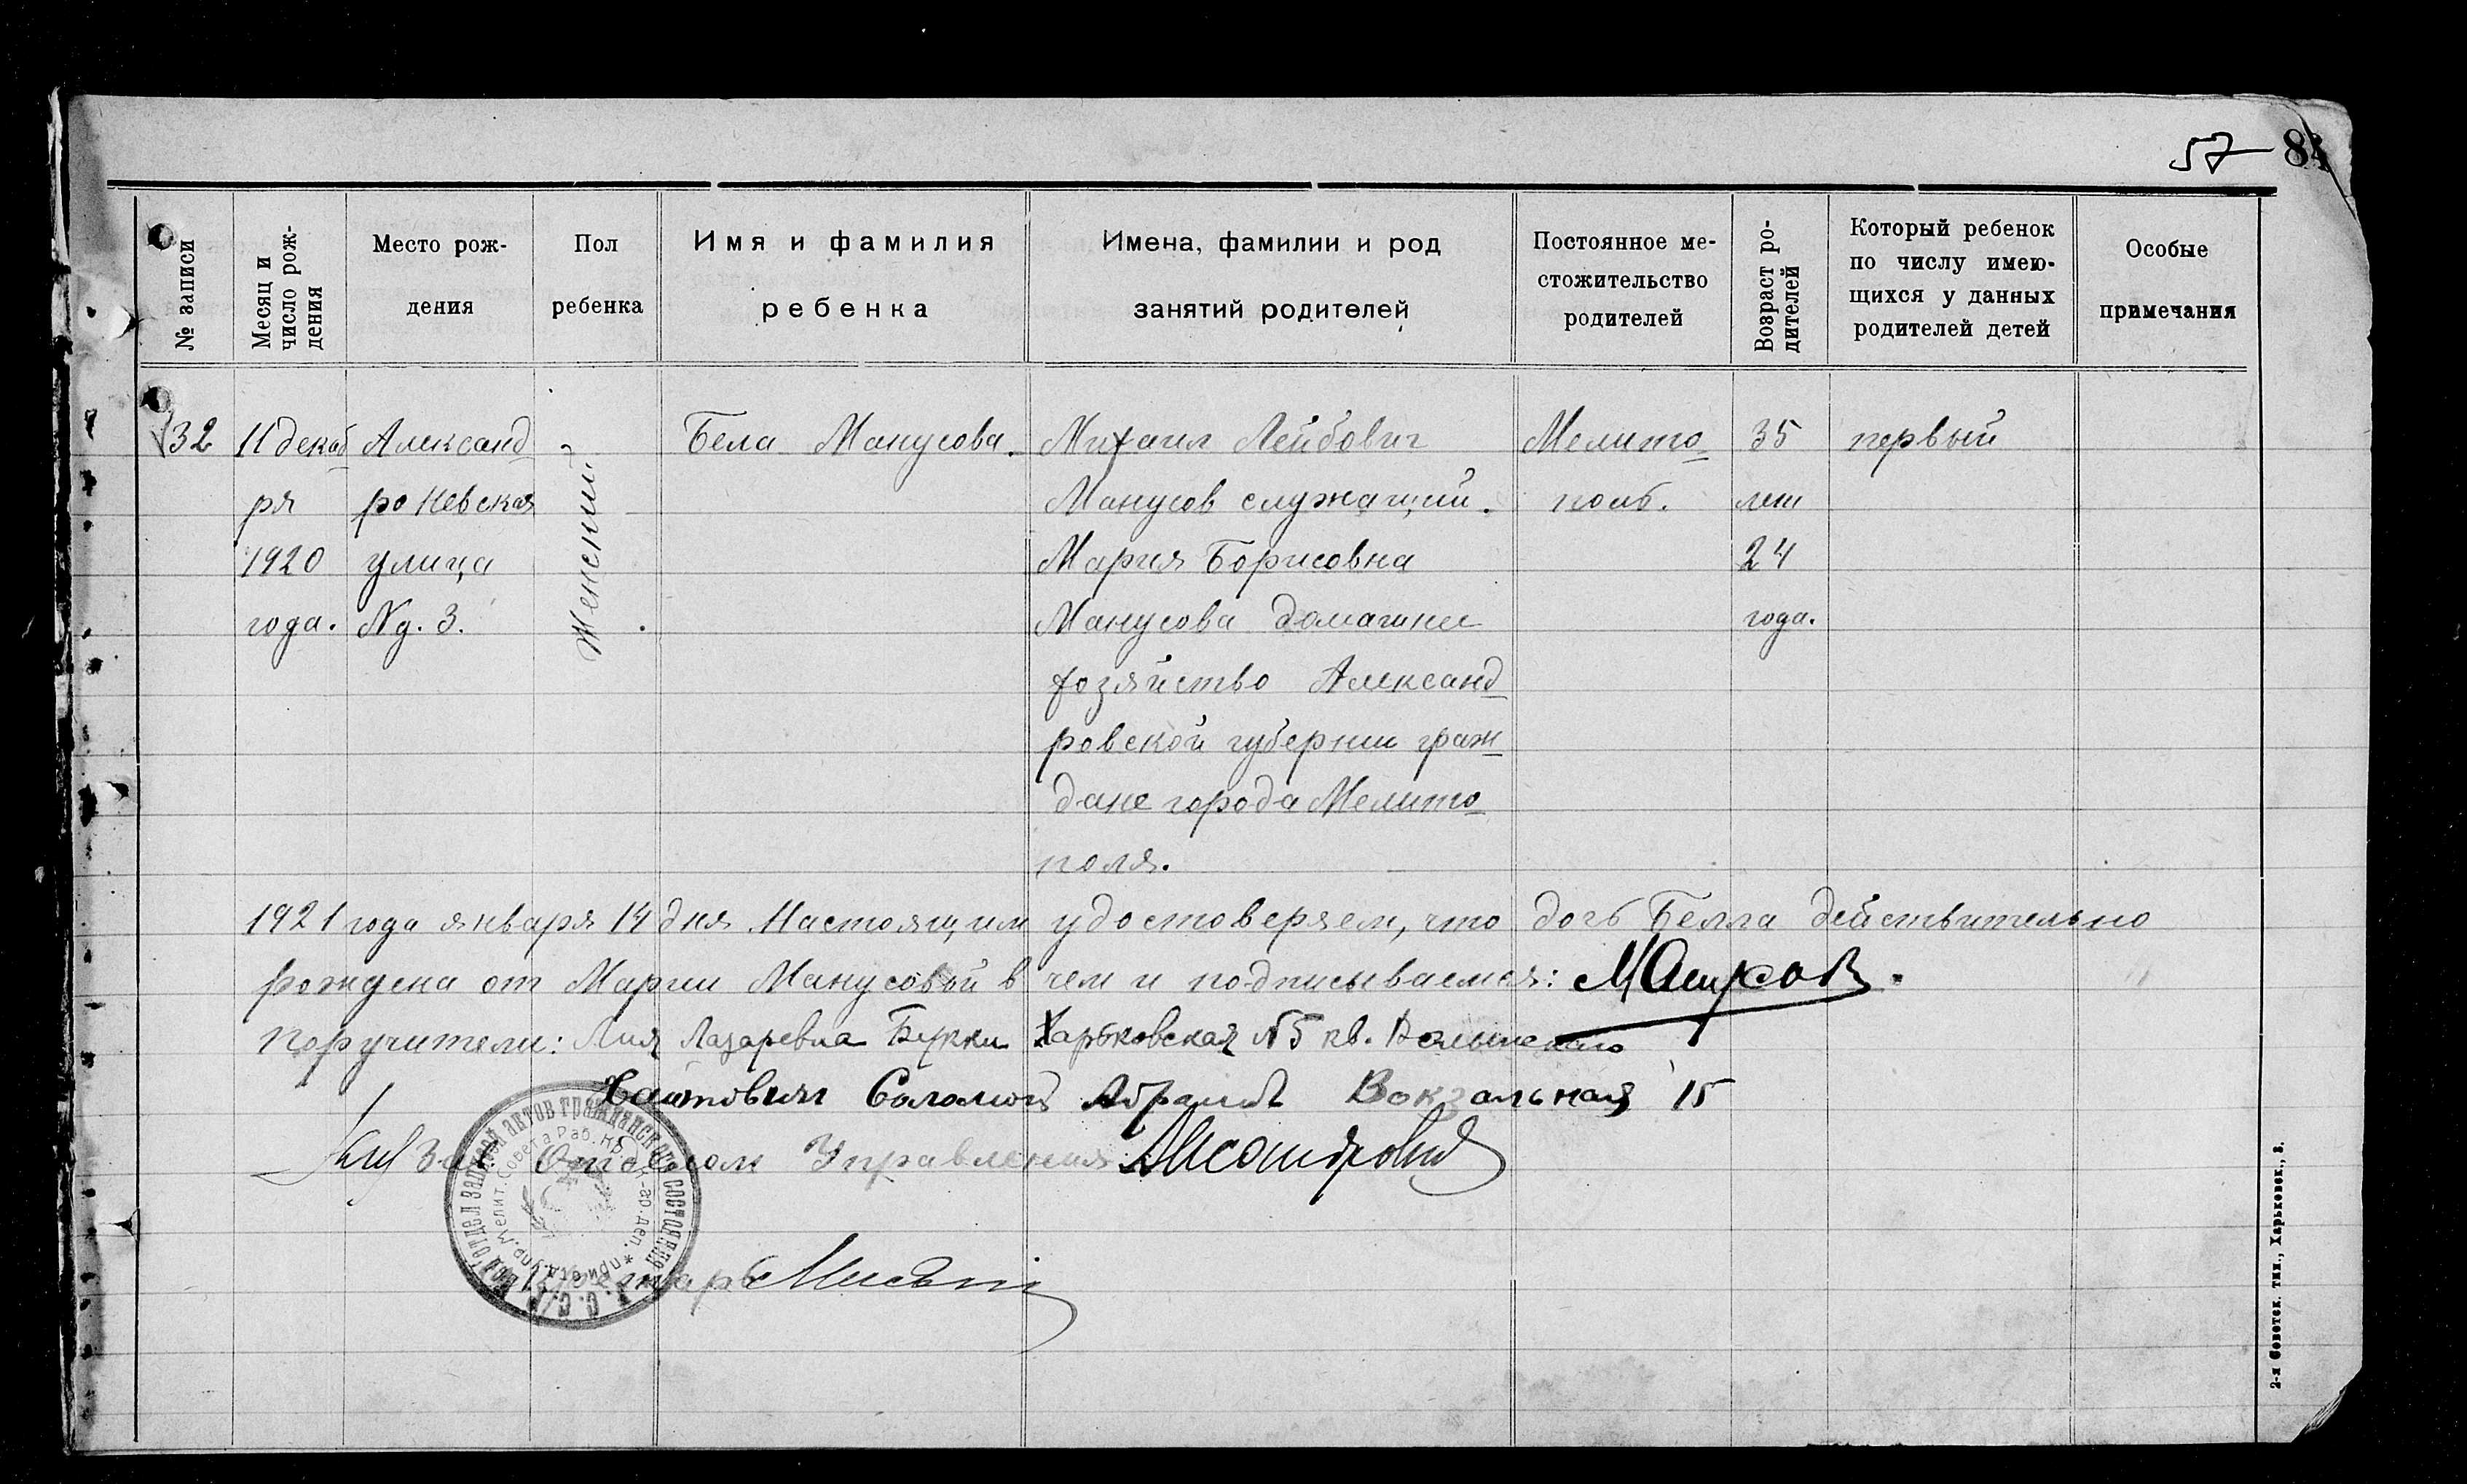 57 84
№ записи
Месяц и
число рож-
дения
Место рож-
дения
Пол
ребенка
Имя и фамилия
ребенка
Имена, фамилии и род
занятий родителей
Постоянное ме-
стожительство
родителей
Возраст ро-
дителей
Который ребенок
по числу имею-
щихся у данных
родителей детей
Особые
примечания
32
11 декаб
ря
1920
года.
Александ
ро Невская
улица
№д. 3.
Женский
Бела Манусова.
Михаил Лейбович
Манусов служащий.
Мария Борисовна
Манусова домашнее
хозяйство Александ
ровской губернии граж
дане города Мелито
поля.
Мелито
поль.
35
лет
24
года.
первый
1921 года января 14 дня Настоящим удостоверяем, что дочь Белла действительно
рождена от Марии Манусовой в чем и подписываемся:
Поручители: Лия Лазаревна Харьковская №5 кв.
Соломон Вокзальная 15
Зав Отделом Управления
2-я Советск. тип., Харьковск., 8.